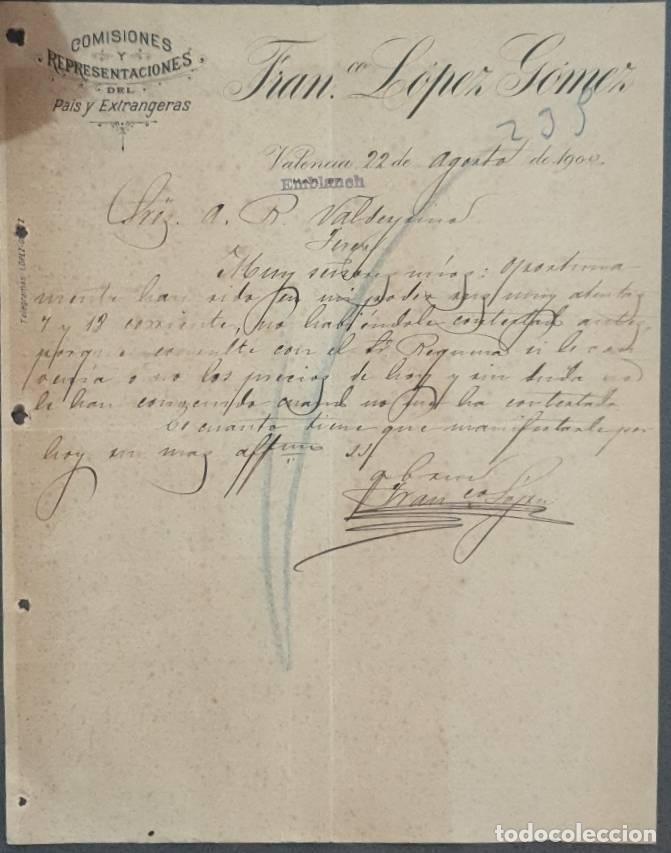 COMISIONES
Y
REPRESENTACIONES
DEL
País y Extrangeras
Fran.co López Gómez
235
Valencia 22 de Agosto de 190
Emblanch
A. R. Valdespino
Jerez
Muy señores mios: Oportuna-
mente han sido en mi poder sus muy atentas
7 y 13 corriente, no habiéndole contestado antes
porque consulte con el Sr Requena si le con
venía o no los precios de hoy y sin duda no
le han convenido cuando no me ha contestado
Es cuanto tiene que manifestarle por
hoy su mas affmo SS
q b s m
Franco López
Telegramas: LOPEZ-GOMEZ
todocoleccion